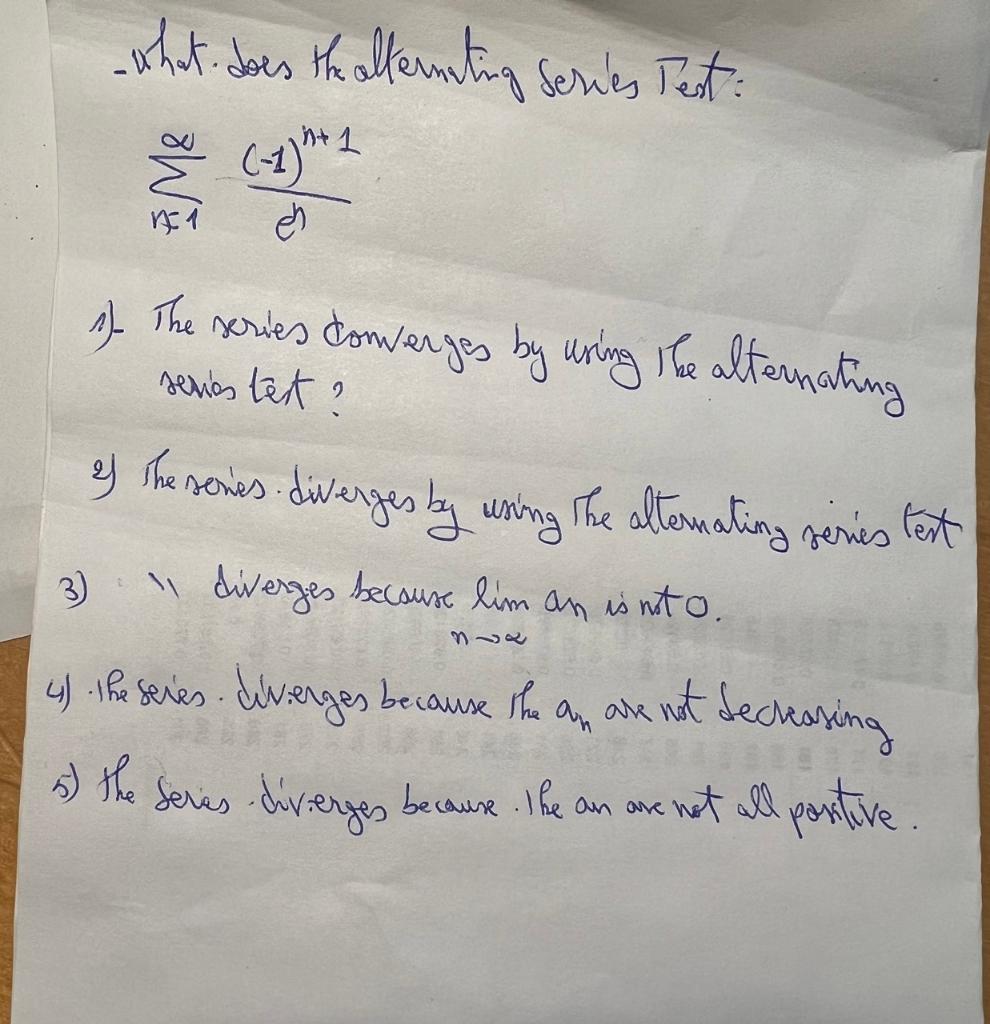 - what does the alternating series Test:
∞
∑ (-1)^{n+1}
n=1 e^n
1)- The series converges by using the alternating
series test ?
2) The series diverges by using the alternating series test
3) " diverges because lim an is not 0.
n→∞
4) The series diverges because the a_n are not decreasing
5) the series diverges because the an are not all positive.